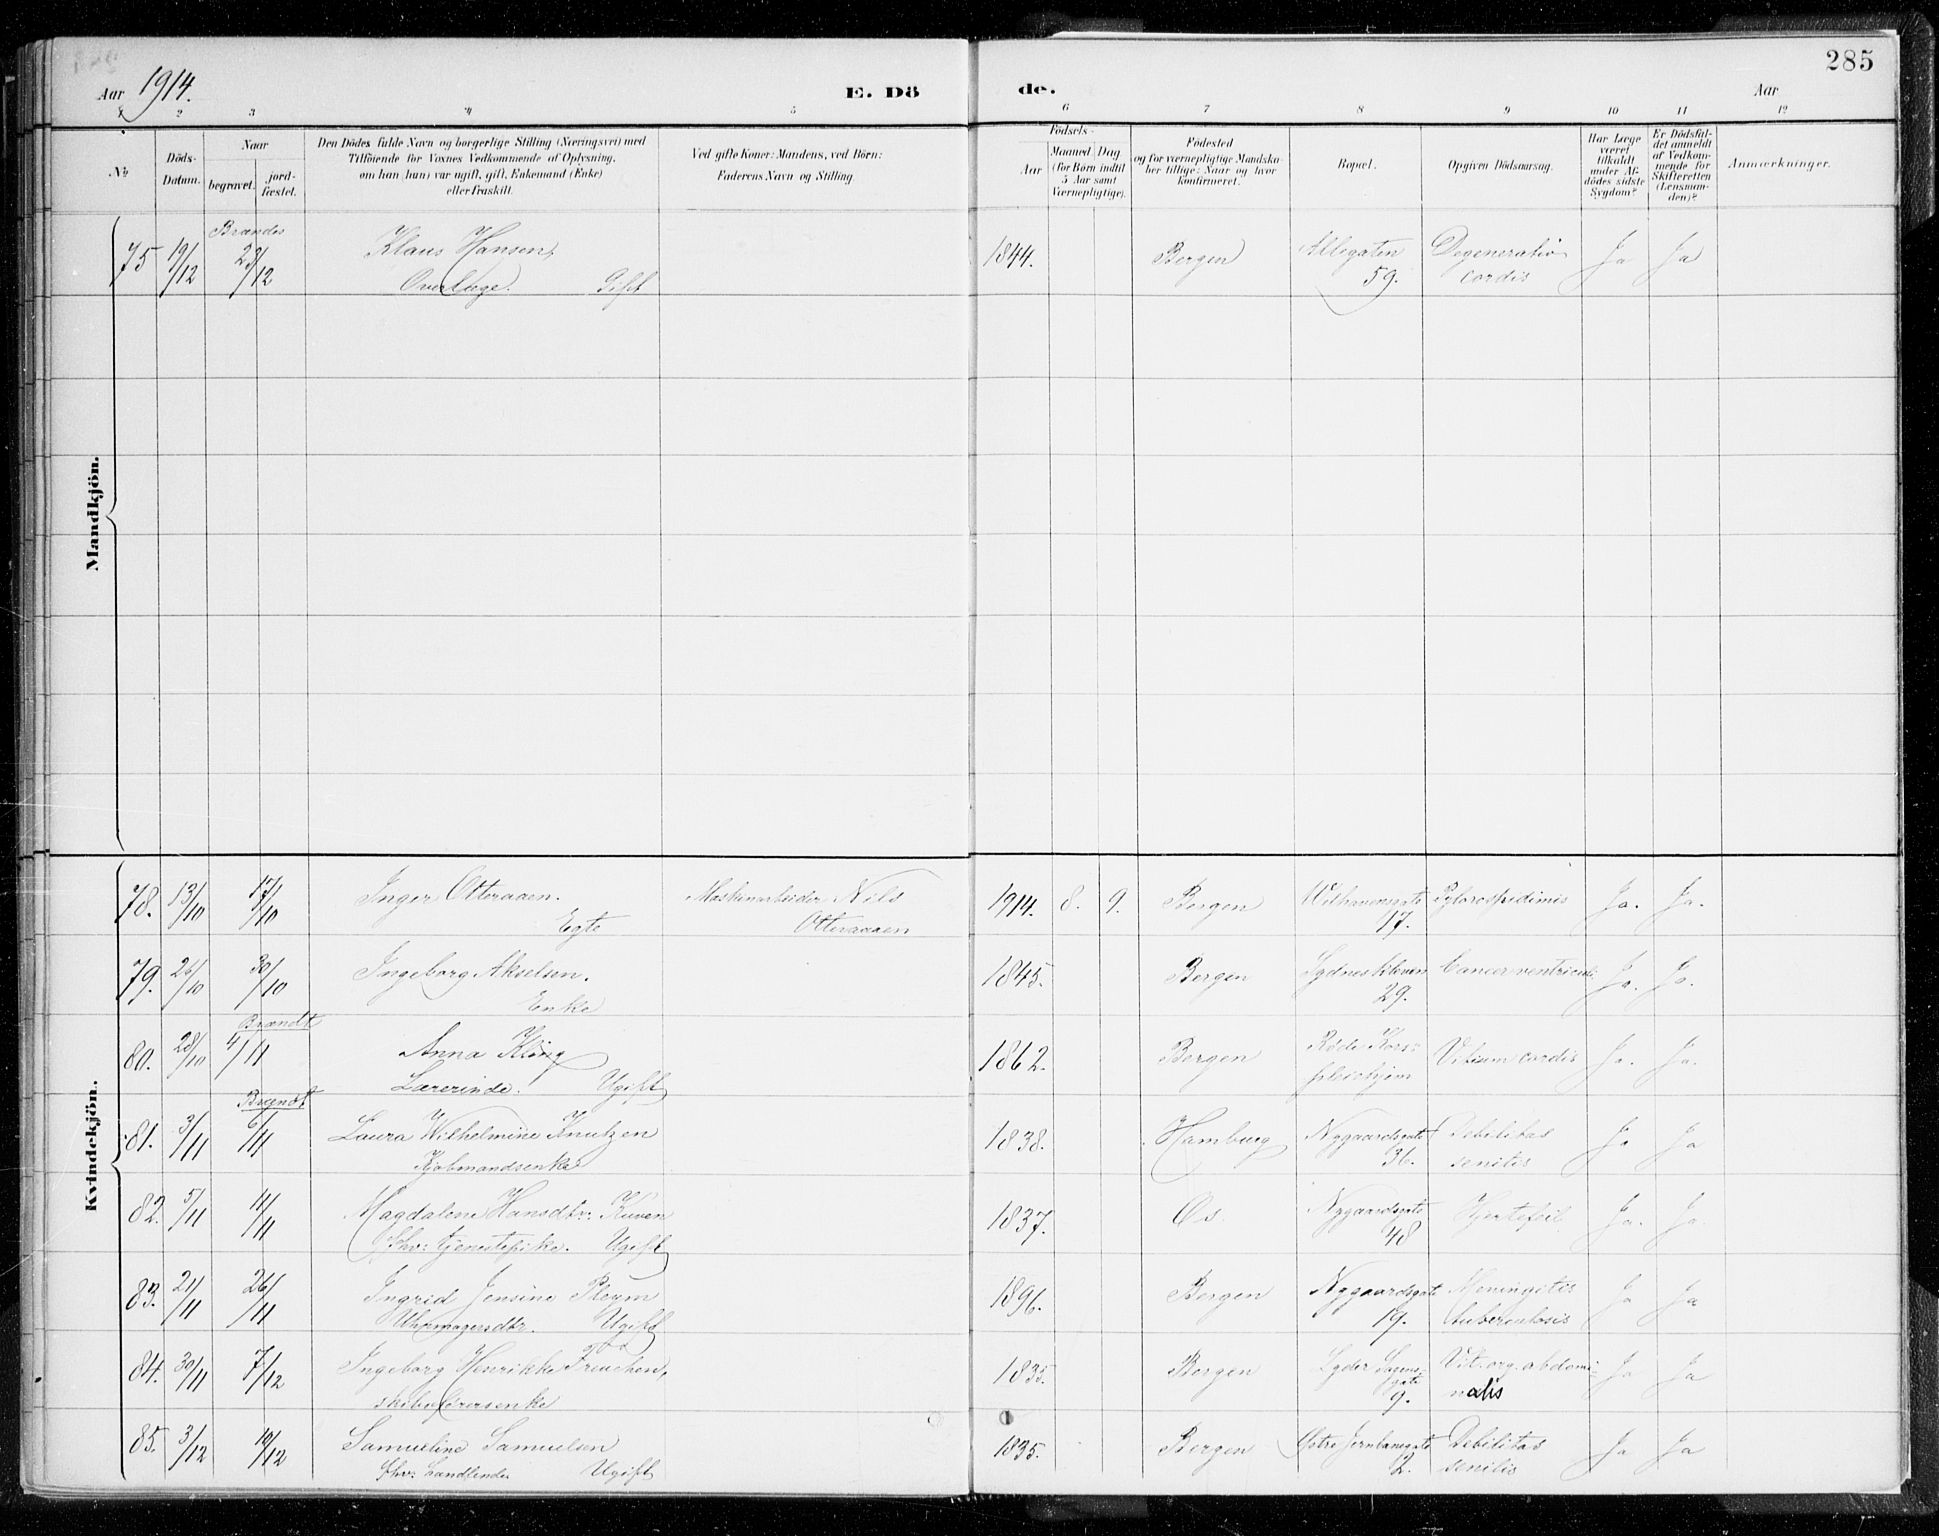 285
Aar 1914.
E. Dö de.
Aar
1 2 3 4 5 6 7 8 9 10 11 12
No
Döds-Datum.
Naar
begravet.
jordfæstet.
Den Dödes fulde Navn og borgerlige Stilling (Næringsvei) med
Tilföiende for Voxnes Vedkommende af Oplysning,
om han (hun) var ugift, gift, Enkemand (Enke)
eller fraskilt.
Ved gifte Koner: Mandens, ved Börn:
Faderens Navn og Stilling
Födsels-
Aar
Maaned Dag
(for Børn indtil
5 Aar samt
Værnepligtige).
Födested
og for værnepligtige Mandska-
ber tillige: Naar og hvor
konfirmeret.
Bopæl.
Opgiven Dödsaarsag.
Har Læge
været
tilkaldt
under Af-
dödes sidste
Sygdom?
Er Dödsfal-
det anmeldt
af Vedkom-
mende for
Skifteretten
(Lensman-
den)?
Anmærkninger.
Mandkjön.
Brændes
75 19/12 23/12 Klaus Hansen, 1844. Bergen Allegaten Degeneratio Ja Ja
Overlæge. Gift 59. cordis
Kvindekjön.
78. 13/10 17/10 Inger Otteraaen. Maskinarbeider Nils 1914. 8. 9. Bergen Welhavensgate Ja. Ja.
Egte Otteraaen 17.
79. 26/10 30/10 Ingeborg Akselsen. 1845. Bergen Sydneskleven Cancer ventriculi Ja. Ja.
Enke 29.
Brændt
80. 28/10 4/11 Anna Kling 1862. Bergen Røde Kors: Vitium cordis Ja. Ja.
Lærerinde. Ugift pleiehjem
Brændt
81. 3/11 6/11 Laura Wilhelmine Knutzen 1838. Hamburg Nygaardsgate Debilitas Ja Ja
Kjøbmandsenke 36. senilis
82. 5/11 11/11 Magdalene Hansdtr: Kuven 1837. Os Nygaardsgate Hjertefeil Ja. Ja.
fhv: tjenestepike. Ugift 48
83. 21/11 26/11 Ingrid Jensine Pleym 1896. Bergen Nygaardsgate Meningitis Ja Ja
Uhrmagersdtr. Ugift 19. tuberculosis
84. 30/11 7/12 Ingeborg Henrikke Freuchen, 1835. Bergen Lyder Sagens- Vit. org. abdomi- Ja Ja
skibsførersenke gate 9. nalis
85. 3/12 10/12 Samueline Samuelsen 1835. Bergen Østre Jernbanegate Debilitas Ja Ja
fhv: Ugift 12. senilis